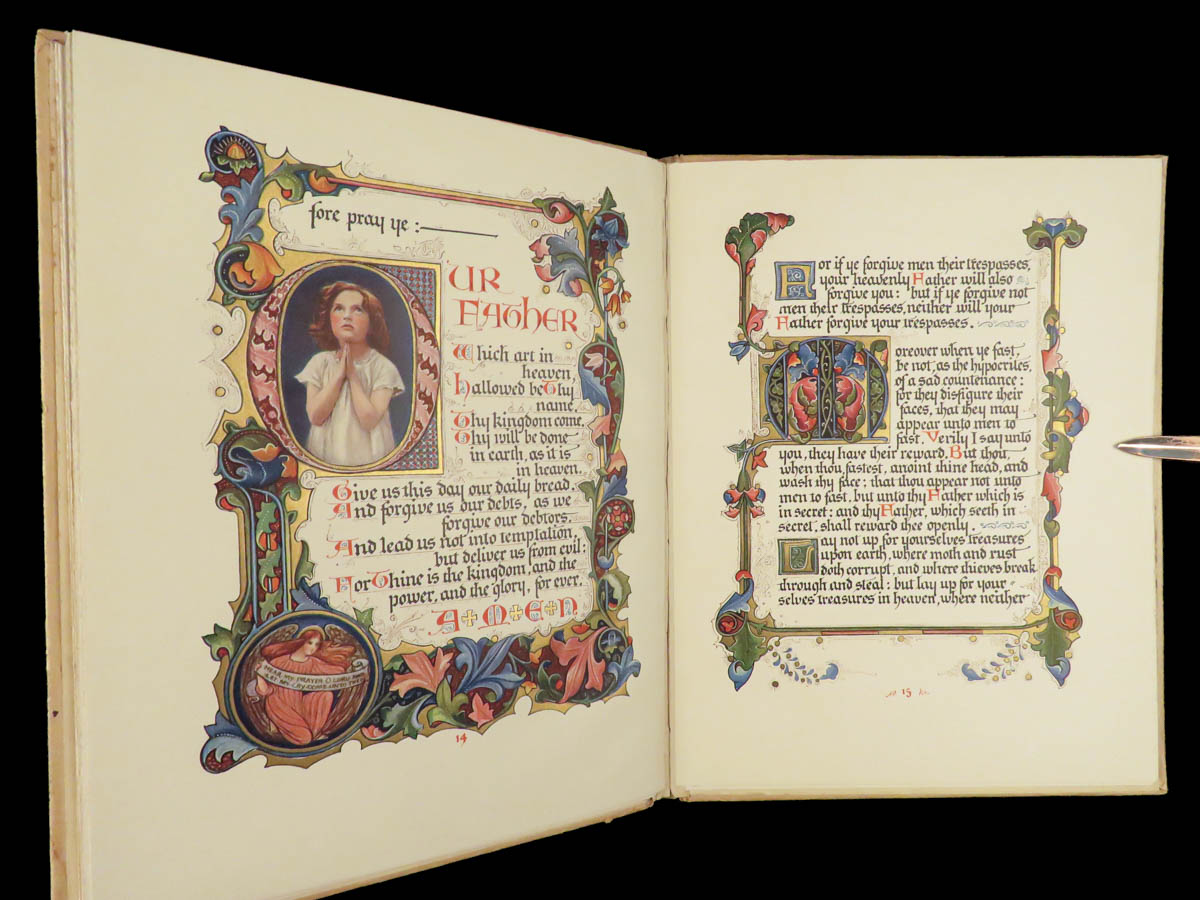 fore pray ye :
OUR
FATHER
Which art in
heaven,
Hallowed be Thy
name.
Thy kingdom come.
Thy will be done
in earth, as it is
in heaven.
Give us this day our daily bread.
And forgive us our debts, as we
forgive our debtors.
And lead us not into temptation,
but deliver us from evil:
For Thine is the kingdom, and the
power, and the glory, for ever.
A+M+E+N
HEAR MY PRAYER O LORD AND
LET MY CRY COME UNTO THEE
14
For if ye forgive men their trespasses,
your heavenly Father will also
forgive you: but if ye forgive not
men their trespasses, neither will your
Father forgive your trespasses.
Moreover when ye fast,
be not, as the hypocrites,
of a sad countenance:
for they disfigure their
faces, that they may
appear unto men to
fast. Verily I say unto
you, they have their reward. But thou,
when thou fastest, anoint thine head, and
wash thy face; that thou appear not unto
men to fast, but unto thy Father which is
in secret: and thy Father, which seeth in
secret, shall reward thee openly.
Lay not up for yourselves treasures
upon earth, where moth and rust
doth corrupt, and where thieves break
through and steal: but lay up for your-
selves treasures in heaven, where neither
15